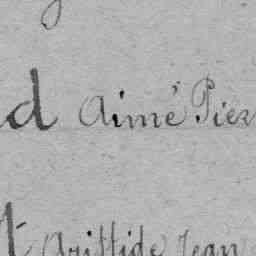 d Aimé Pier
t Aristide Jean